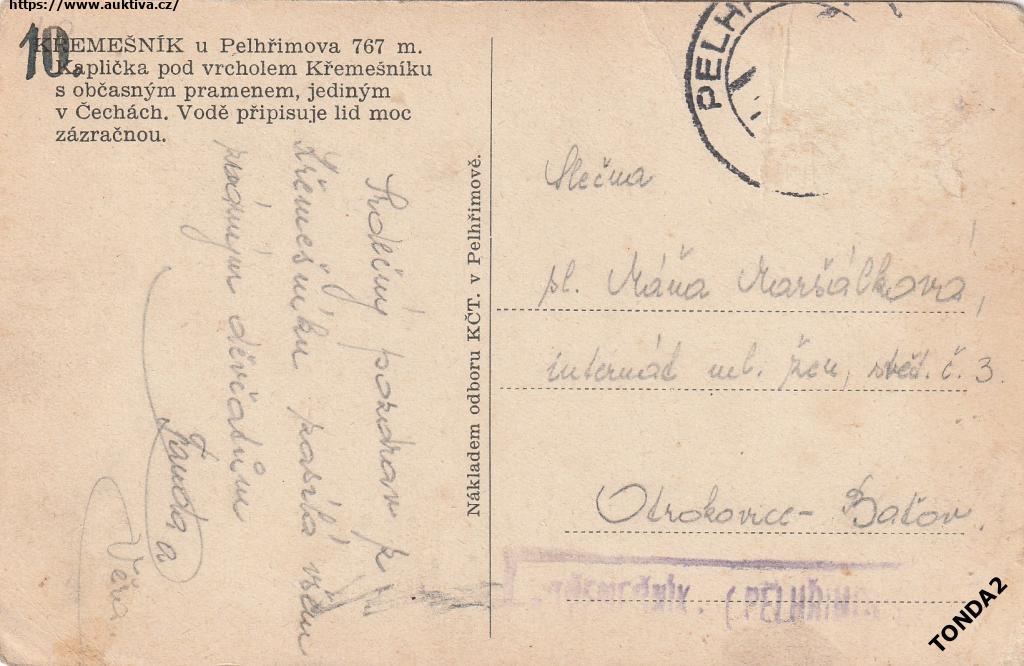 https://www.auktiva.cz/
10.
KŘEMEŠNÍK u Pelhřimova 767 m.
Kaplička pod vrcholem Křemešníku
s občasným pramenem, jediným
v Čechách. Vodě připisuje lid moc
zázračnou.
Srdečný pozdrav z
Křemešníku posílá všem
známým děvčatům
Fanda a
Věra
Nákladem odboru KČT. v Pelhřimově.
PELHŘ
Slečna
sl. Máňa Maršálková,
internát ml. žen, svět. č. 3.
Otrokovice - Baťov.
(PELHŘIM
TONDA2